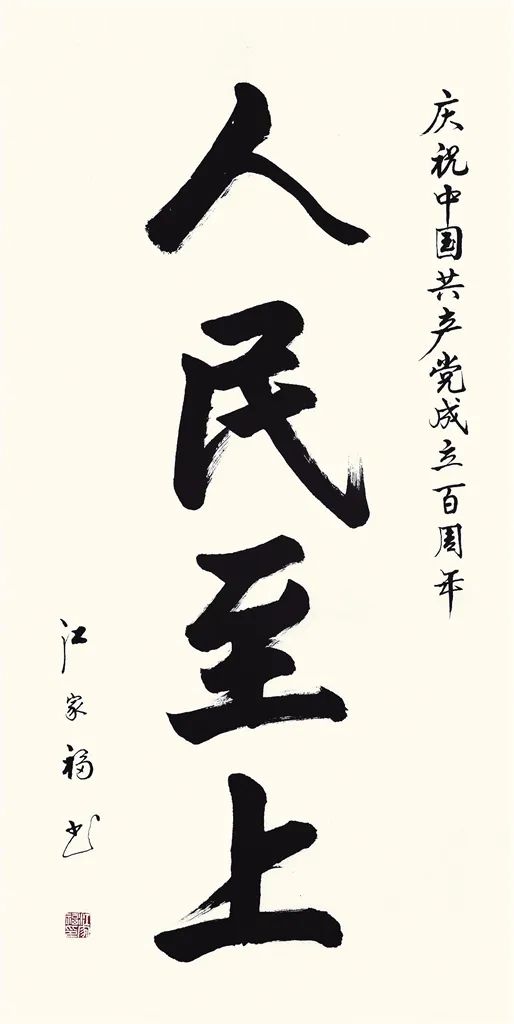 庆祝中国共产党成立百周年
人民至上
江家福书